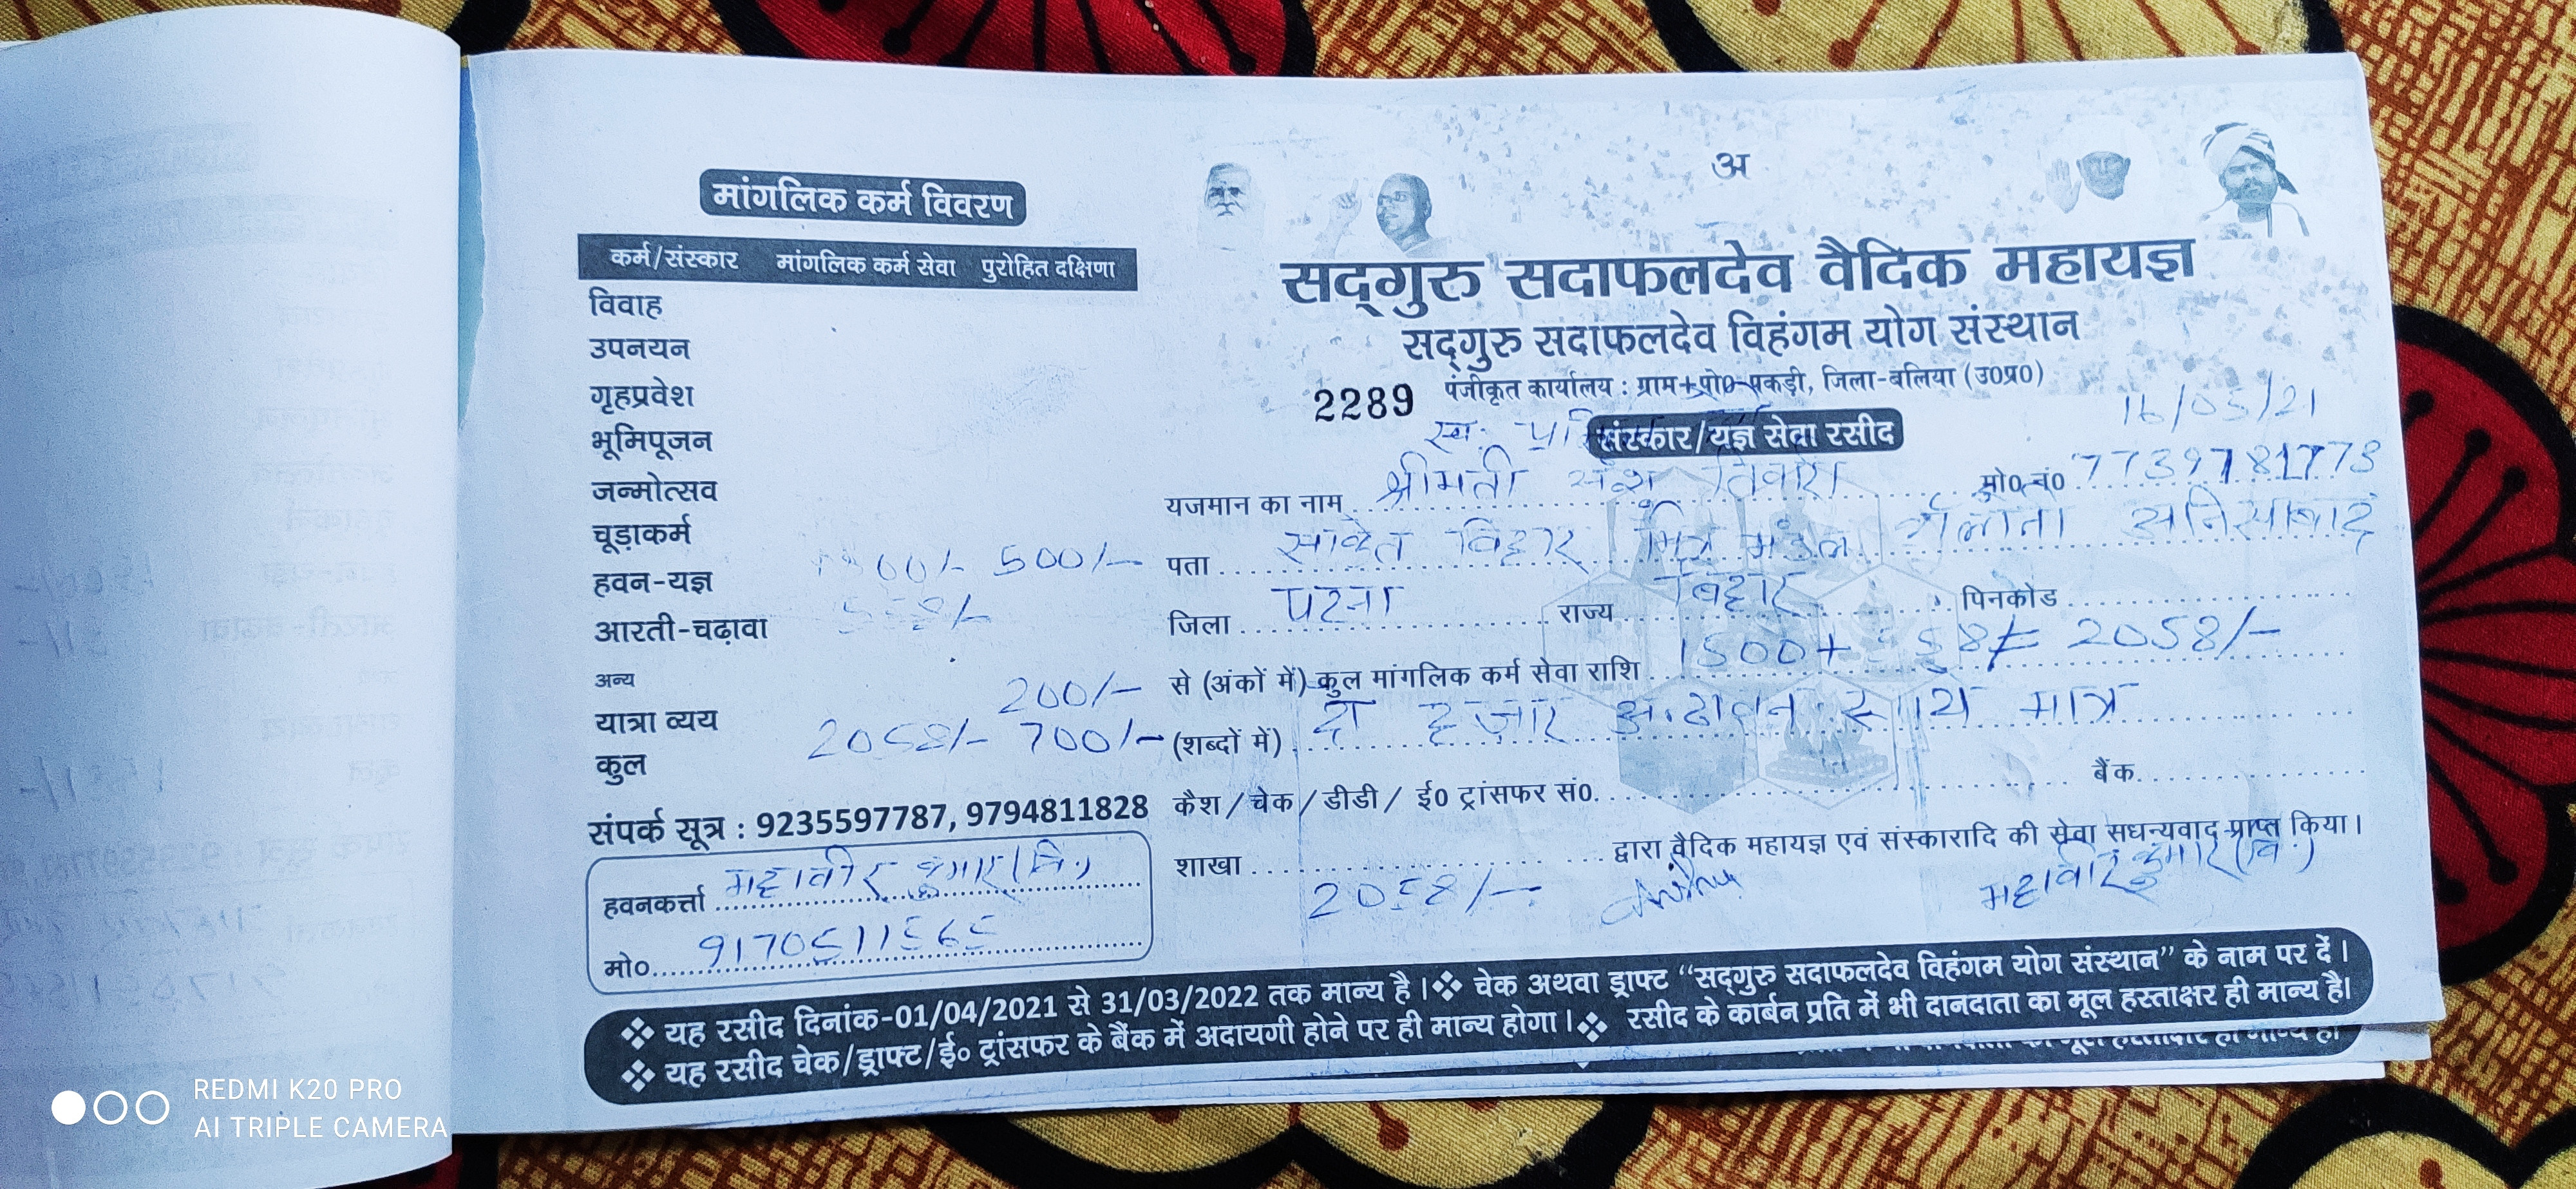 मांगलिक कर्म विवरण
कर्म/संस्कार मांगलिक कर्म सेवा पुरोहित दक्षिणा
विवाह
उपनयन
गृहप्रवेश
भूमिपूजन
जन्मोत्सव
चूड़ाकर्म
हवन-यज्ञ 1500/- 500/-
आरती-चढ़ावा 558/-
अन्य
यात्रा व्यय 200/-
कुल 2058/- 700/-
संपर्क सूत्र : 9235597787, 9794811828
हवनकर्त्ता महावीर कुमार (वि.)
मो० 9170511565
अ
सद्गुरु सदाफलदेव वैदिक महायज्ञ
सद्गुरु सदाफलदेव विहंगम योग संस्थान
2289 पंजीकृत कार्यालय : ग्राम+पो०-पकड़ी, जिला-बलिया (उ0प्र0)
16/05/21
स्व.
संस्कार/यज्ञ सेवा रसीद
यजमान का नाम श्रीमती तिवारी मो० नं० 7739781773
पता साकेत विहार मित्र मंडल अनिसाबाद
जिला पटना राज्य बिहार पिनकोड
से (अंकों में) कुल मांगलिक कर्म सेवा राशि 1500+558/= 2058/-
(शब्दों में) दो हजार अंठावन रूपये मात्र
कैश/चेक/डीडी/ ई0 ट्रांसफर सं0. बैंक
शाखा द्वारा वैदिक महायज्ञ एवं संस्कारादि की सेवा सधन्यवाद प्राप्त किया।
2058/- महावीर कुमार (वि.)
❖ यह रसीद दिनांक-01/04/2021 से 31/03/2022 तक मान्य है। ❖ चेक अथवा ड्राफ्ट “सद्गुरु सदाफलदेव विहंगम योग संस्थान” के नाम पर दें।
❖ यह रसीद चेक/ड्राफ्ट/ई० ट्रांसफर के बैंक में अदायगी होने पर ही मान्य होगा। ❖ रसीद के कार्बन प्रति में भी दानदाता का मूल हस्ताक्षर ही मान्य है।
REDMI K20 PRO
AI TRIPLE CAMERA